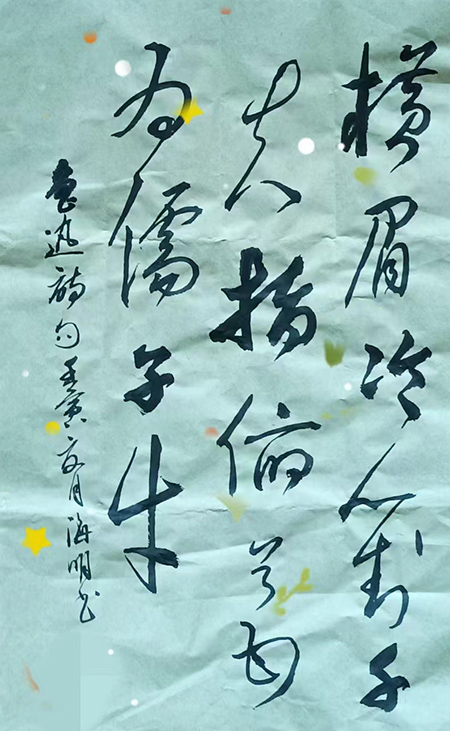 横眉冷對千
夫指俯首甘
为儒子牛
鲁迅诗句壬寅六月海明书